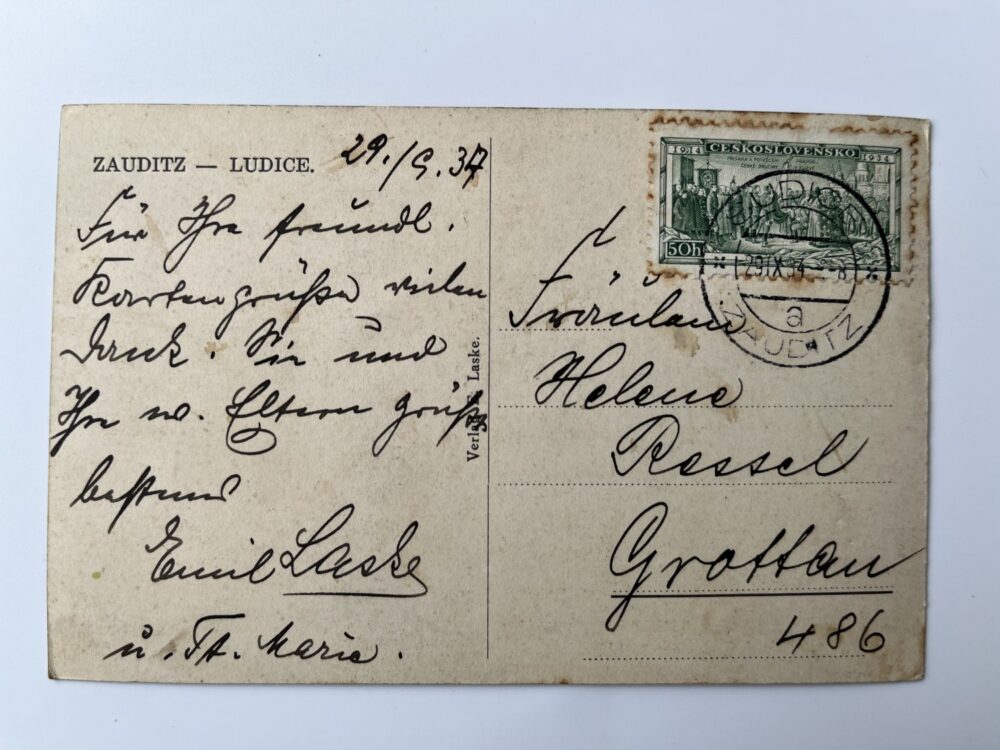 ZAUDITZ — LUDICE.
29./9. 37
Für Ihre freundl.
Kartengrüße vielen
Dank. Sie und
Ihre w. Eltern grüßt
bestens
Emil Laske
u. Marie.
Verlag E. Laske.
1914 ČESKOSLOVENSKO 1934
50h
LUDICE
29.IX.34
a
ZAUDITZ
Fräulein
Helene
Ressel
Grottau
486